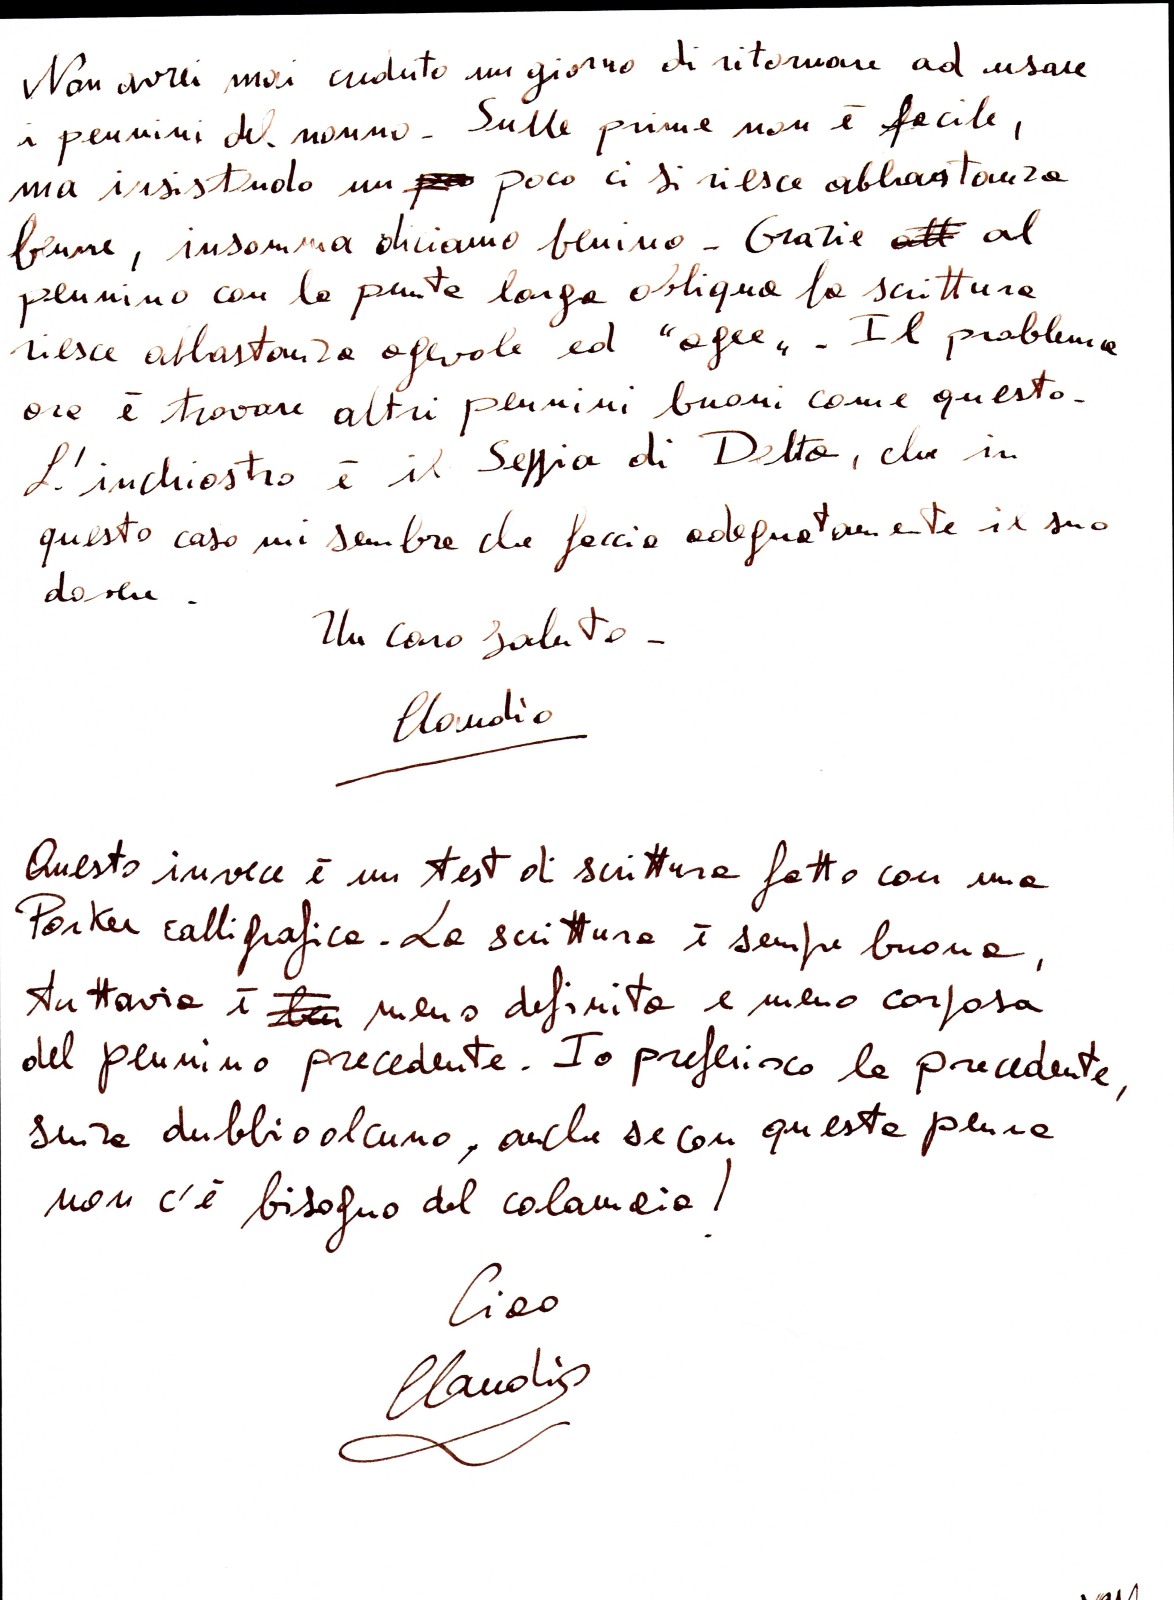 Non avrei mai creduto un giorno di ritornare ad usare
i pennini del nonno - Sulle prime non è facile,
ma insistendo un po poco ci si riesce abbastanza
bene, insomma diciamo benino - Grazie all al
pennino con la punta larga obliqua la scrittura
riesce abbastanza agevole ed "agee" - Il problema
ora è trovare altri pennini buoni come questo -
L'inchiostro è il Seppia di Delta, che in
questo caso mi sembra che faccia adeguatamente il suo
dovere .
Un caro saluto -
Claudio
Questo invece è un test di scrittura fatto con una
Parker calligrafica - La scrittura è sempre buona,
tuttavia è ben meno definita e meno corposa
del pennino precedente. Io preferisco la precedente,
senza dubbio alcuno, anche se con questa penna
non c'è bisogno del calamaio!
Ciao
Claudio